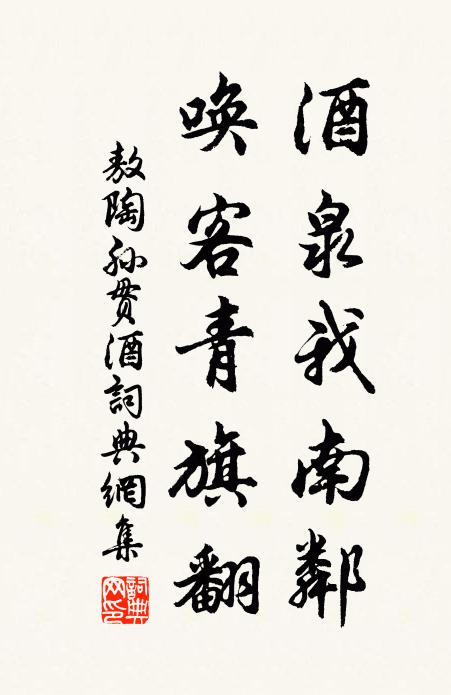 酒泉我南鄰
喚客青旗翻
敖陶孫貰酒詞典網集
詞典網印